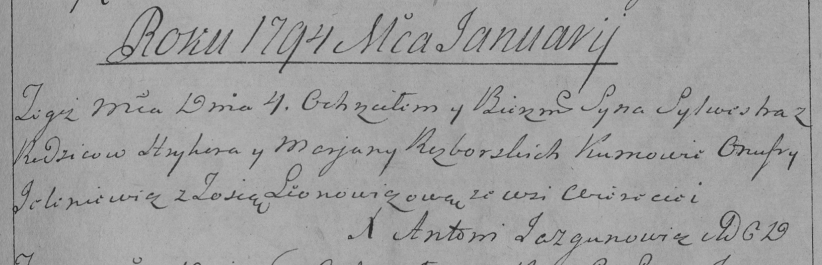 Roku 1794 Mca Januarij
Tegoż Mca Dnia 4. Ochrzciłem y Bierzm Syna Sylwestra z
Rodzicow Hryhera y Marjany Rezborskich Kumowie Onufry
Jeleniewicz z Zosią Leonowiczową ze wsi
X Antoni Jazgunowicz